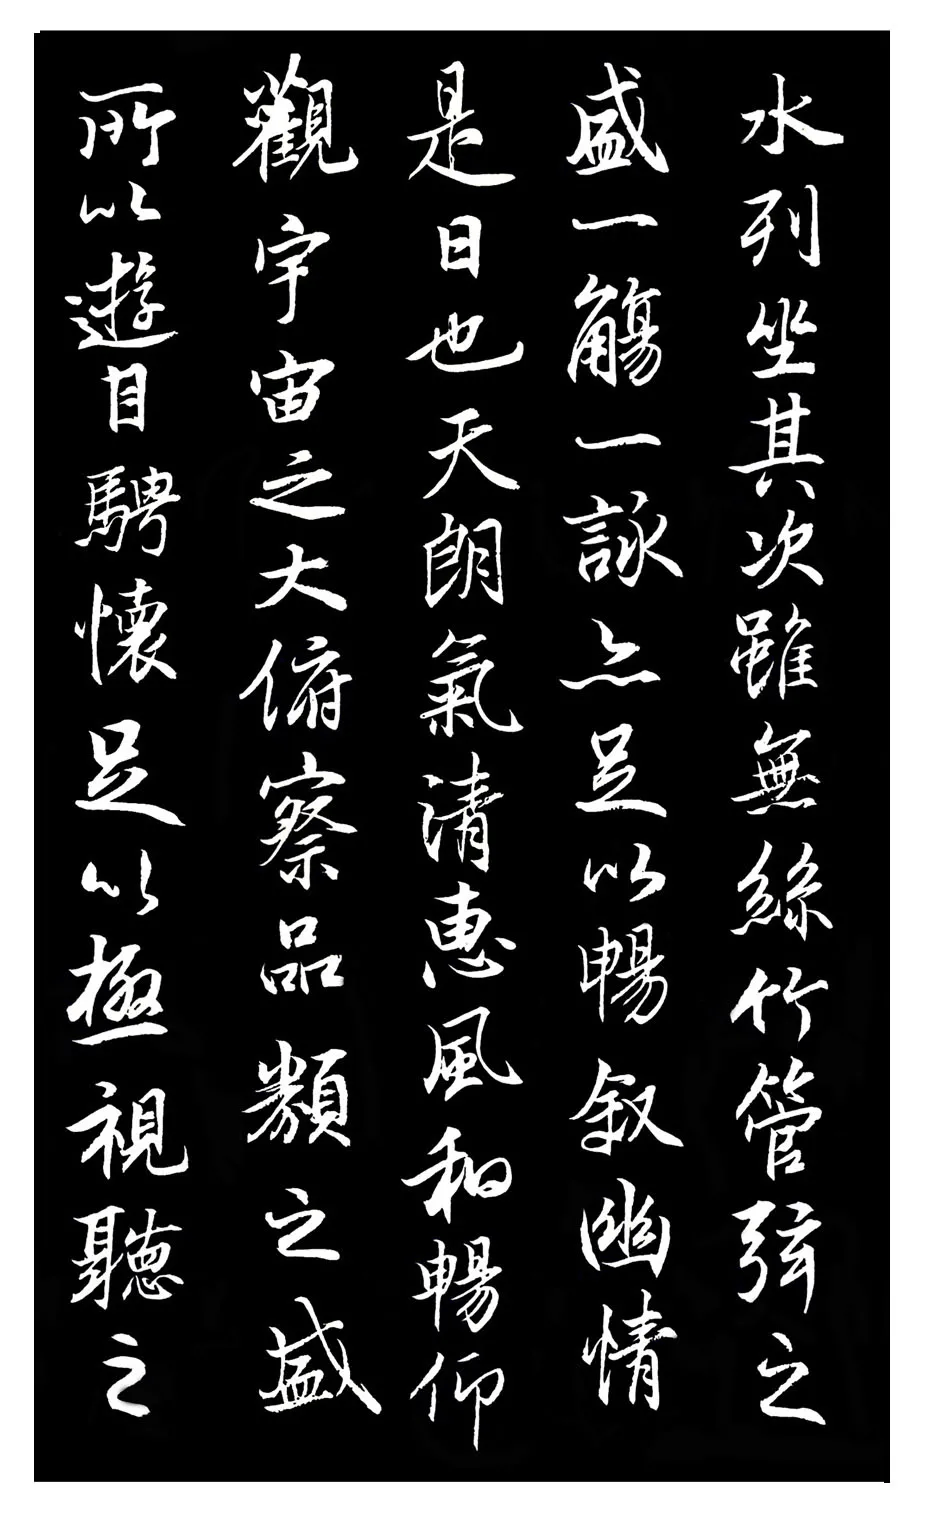 水列坐其次雖無絲竹管弦之
盛一觴一詠亦足以暢叙幽情
是日也天朗氣清惠風和暢仰
觀宇宙之大俯察品類之盛
所以遊目騁懷足以極視聽之